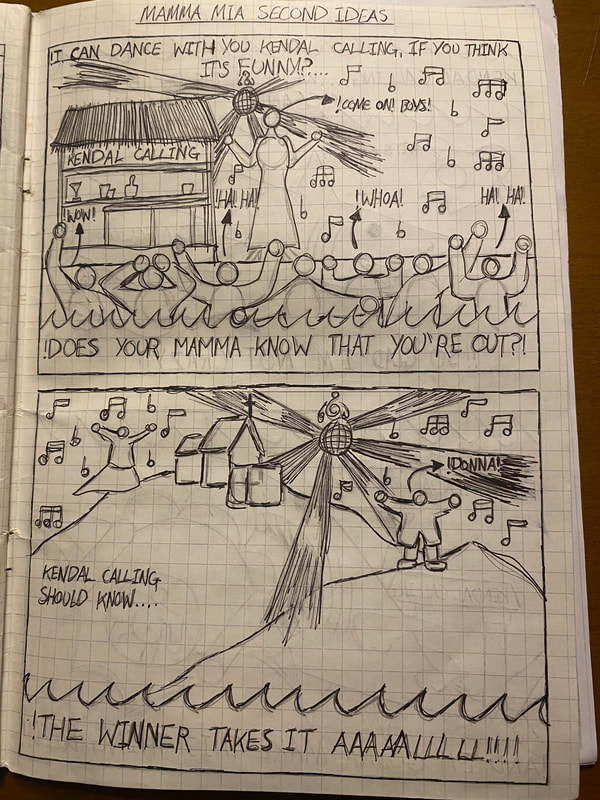 MAMMA MIA SECOND IDEAS
!I CAN DANCE WITH YOU KENDAL CALLING, IF YOU THINK
IT'S FUNNY?....
!COME ON! BOYS!
KENDAL CALLING
!WOW!
!HA! HA!
!WHOA!
HA! HA!
!DOES YOUR MAMMA KNOW THAT YOU'RE OUT?!
!DONNA!
KENDAL CALLING
SHOULD KNOW....
!THE WINNER TAKES IT AAAAALLLLL!!!!